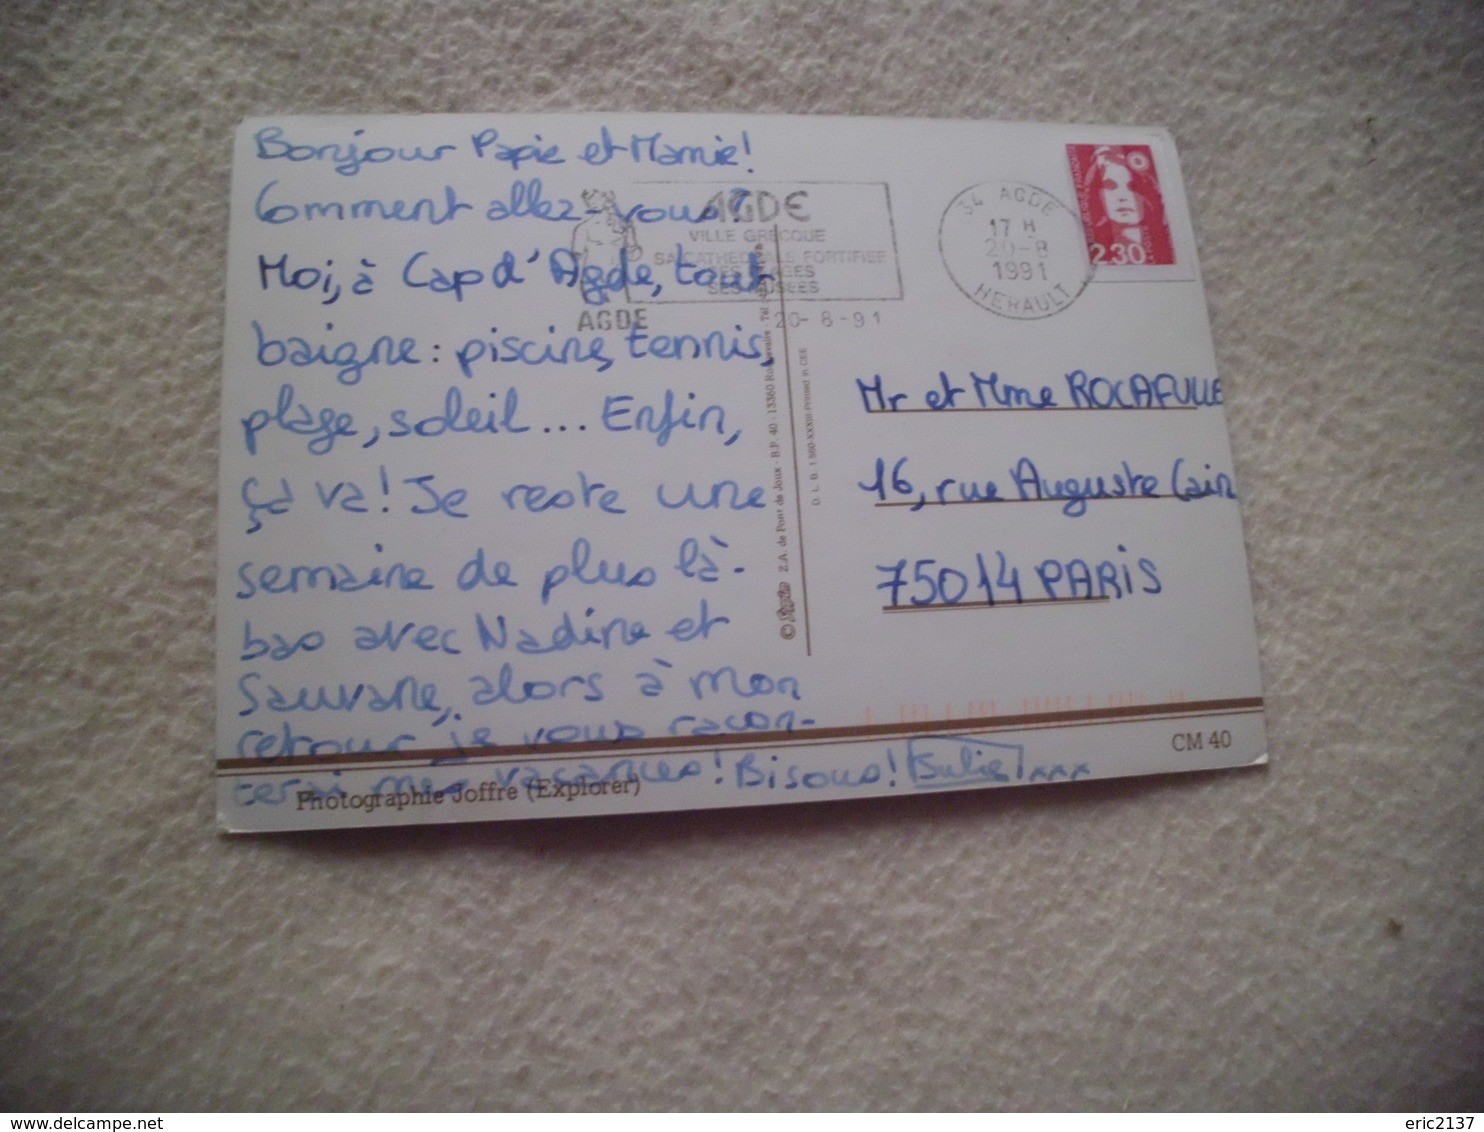 Bonjour Papie et Mamie!
Comment allez-vous?
Moi, à Cap d'Agde, tout
baigne : piscine, tennis,
plage, soleil... Enfin,
ça va! Je reste une
semaine de plus là-
bas avec Nadine et
Sauvane, alors à mon
retour je vous racon-
terai mes vacances! Bisous! Julie! xxx
AGDE
VILLE GRECQUE
SA CATHEDRALE FORTIFIEE
SES PLAGES
SES MUSEES
AGDE
20-8-91
34 AGDE
17 H
20-8
1991
HERAULT
2,30
Mr et Mme ROCAFULLE
16, rue Auguste Cain
75014 PARIS
Z.A. de Pont de Joux - B.P. 40 - 13360 Roquevaire - Tél
Printed in CEE
Photographie Joffre (Explorer)
CM 40
eric2137